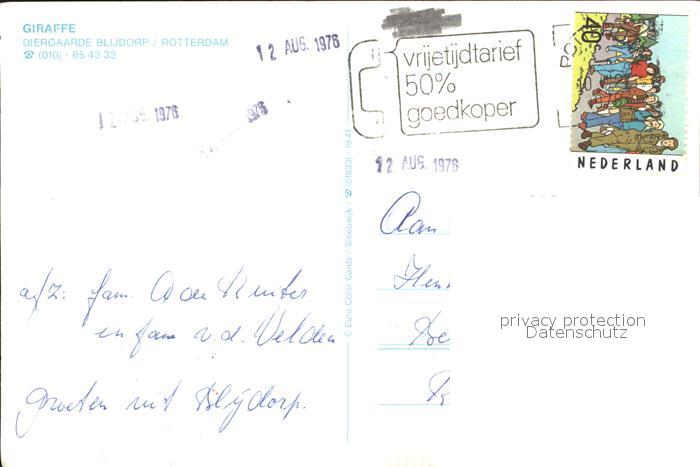 GIRAFFE
DIERGAARDE BLIJDORP / ROTTERDAM
☎ (010) - 65 43 33
12 AUG. 1976
vrijetijdtarief
50%
goedkoper
PO
40c
NEDERLAND
12 AUG. 1976
1976
12 AUG. 1976
© Euro Color Cards / Sleeuwijk / ☎ (01833) - 19 41
Aan
a/z: fam. A de Ruiter
en fam v.d. Velden
Groeten uit Blijdorp.
privacy protection
Datenschutz